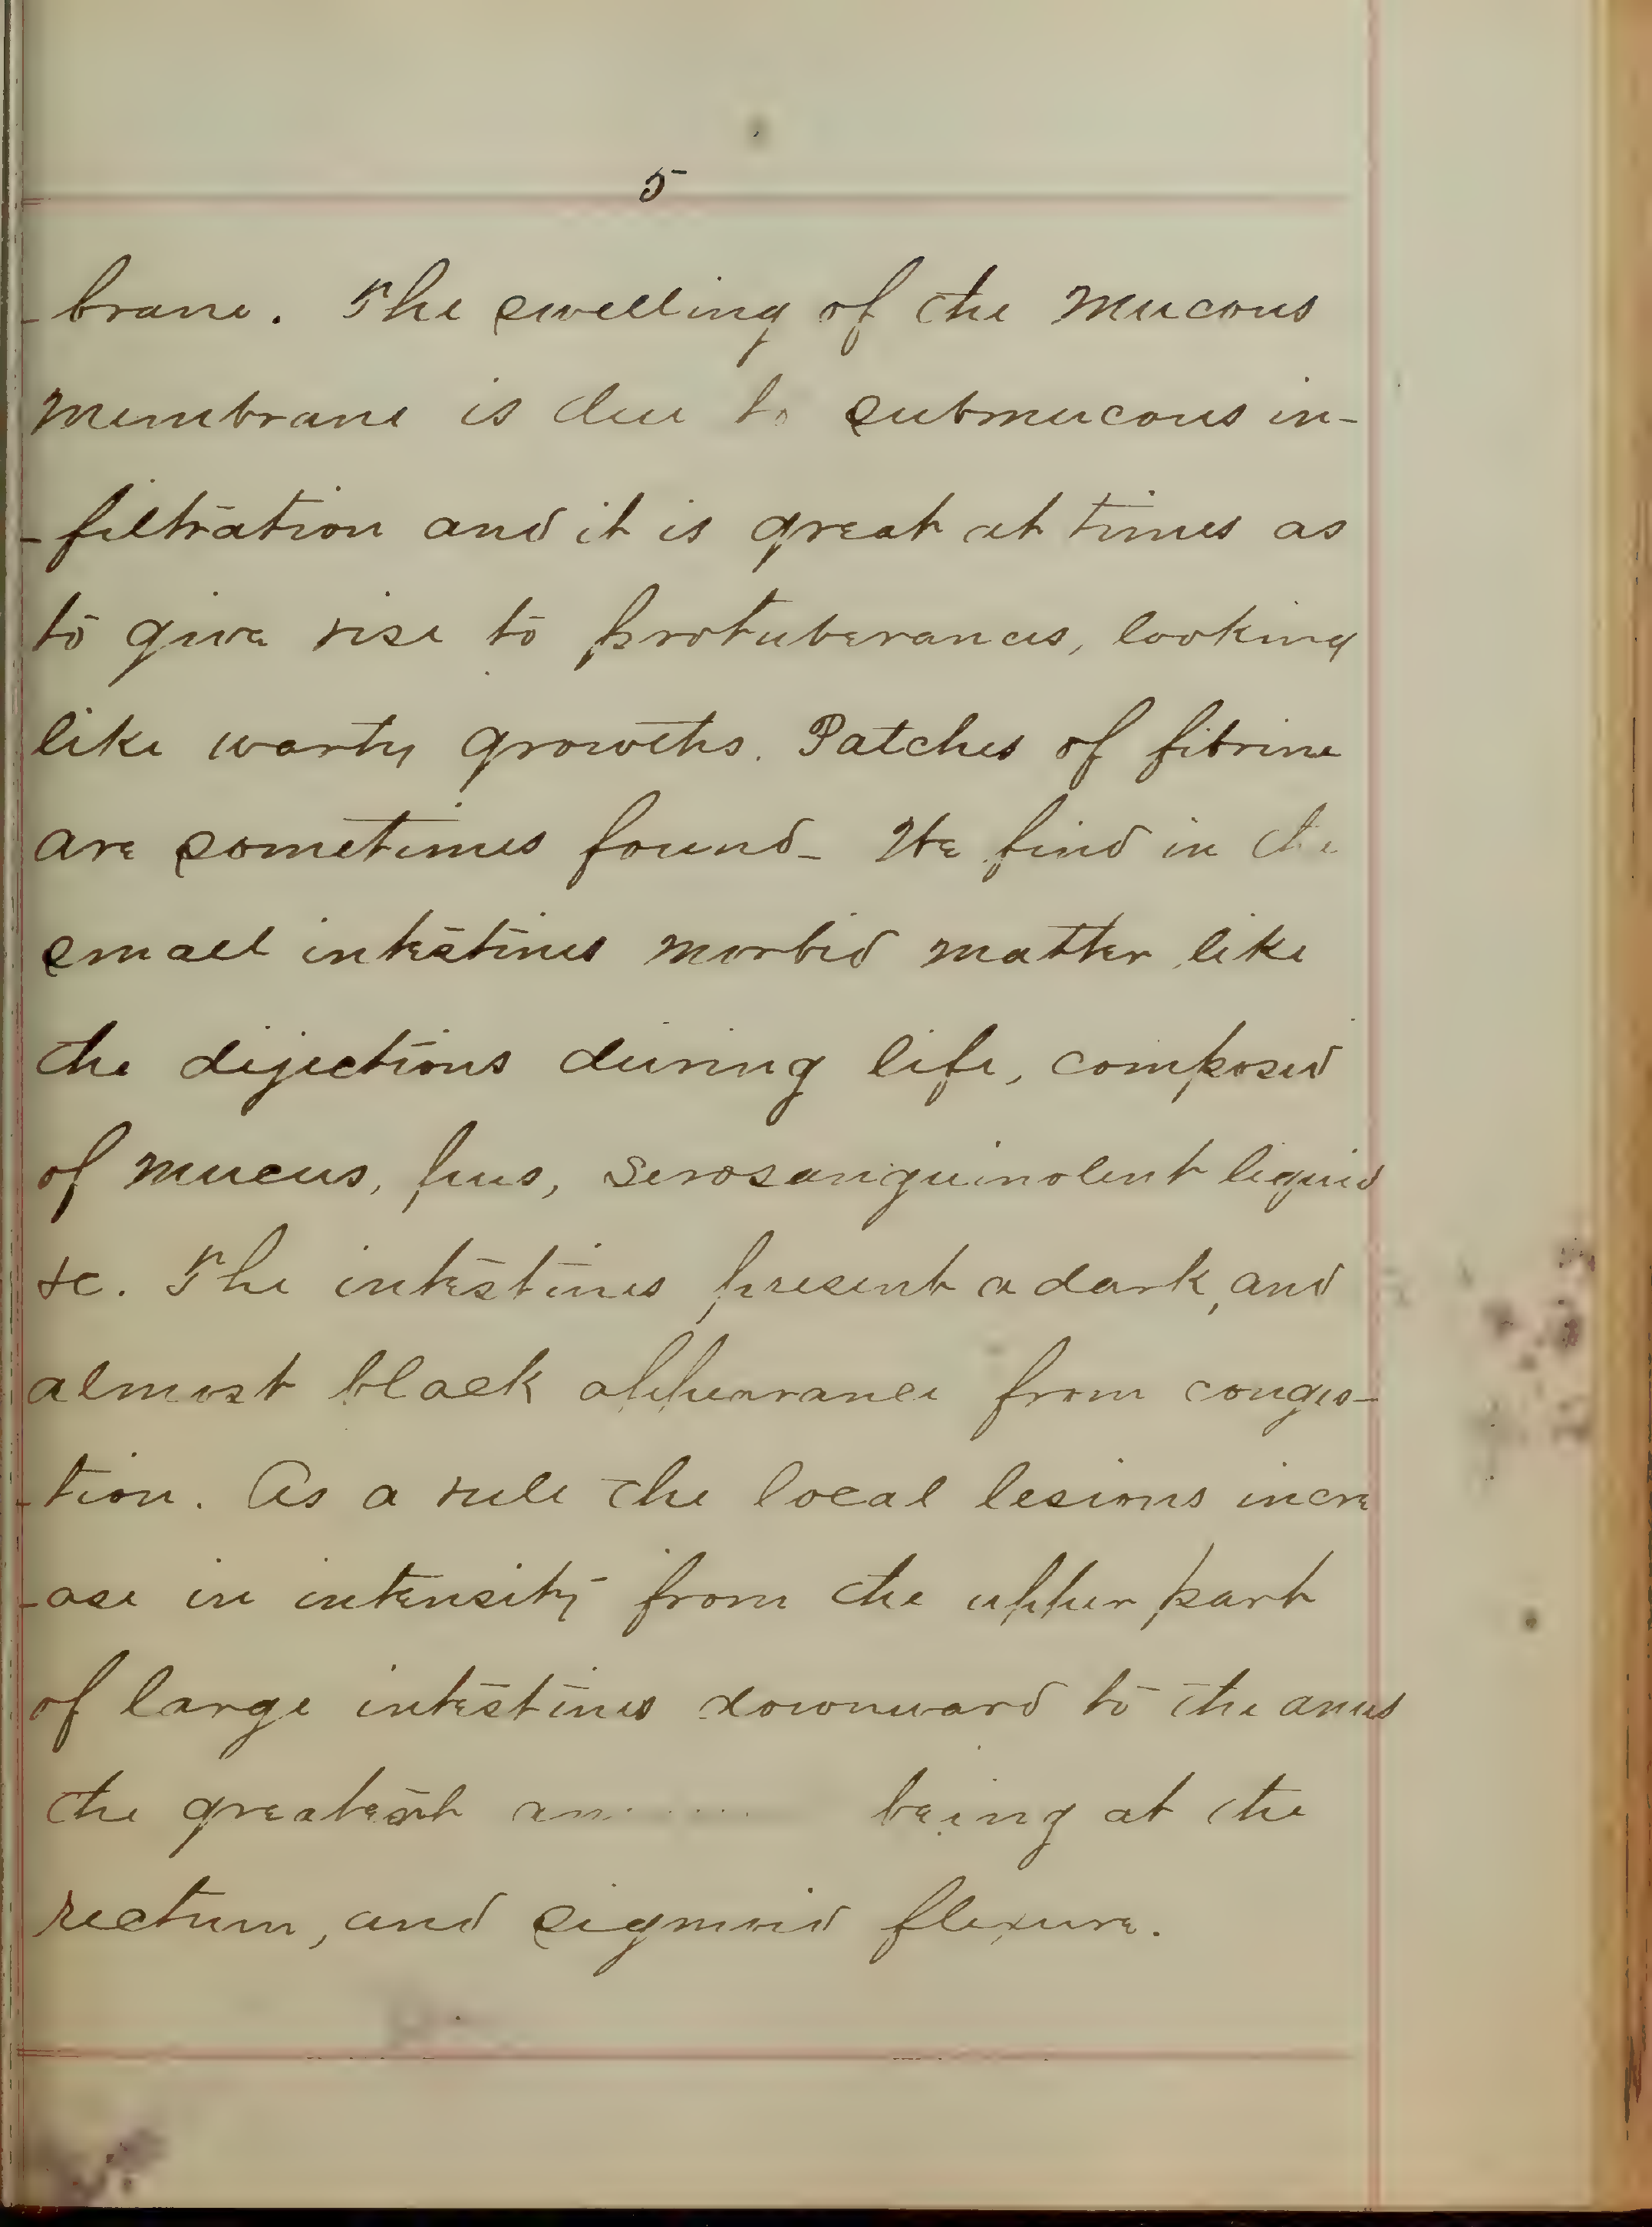 5
-brane. The swelling of the Mucous
Membrane is due to submucous in-
-filtration and it is great at times as
to give rise to protuberances, looking
like warty growths. Patches of fibrine
are sometimes found_ We find in the
small intestines morbid matter like
the dijections during life, composed
of mucus, pus, serosanguinolent liquid
&c. The intestines present a dark, and
almost black appearance from conges-
-tion. As a rule the local lesions incre
-ase in intensity from the upper part
of large intestines downward to the anus
the greatest being at the
rectum, and sigmoid flexure.